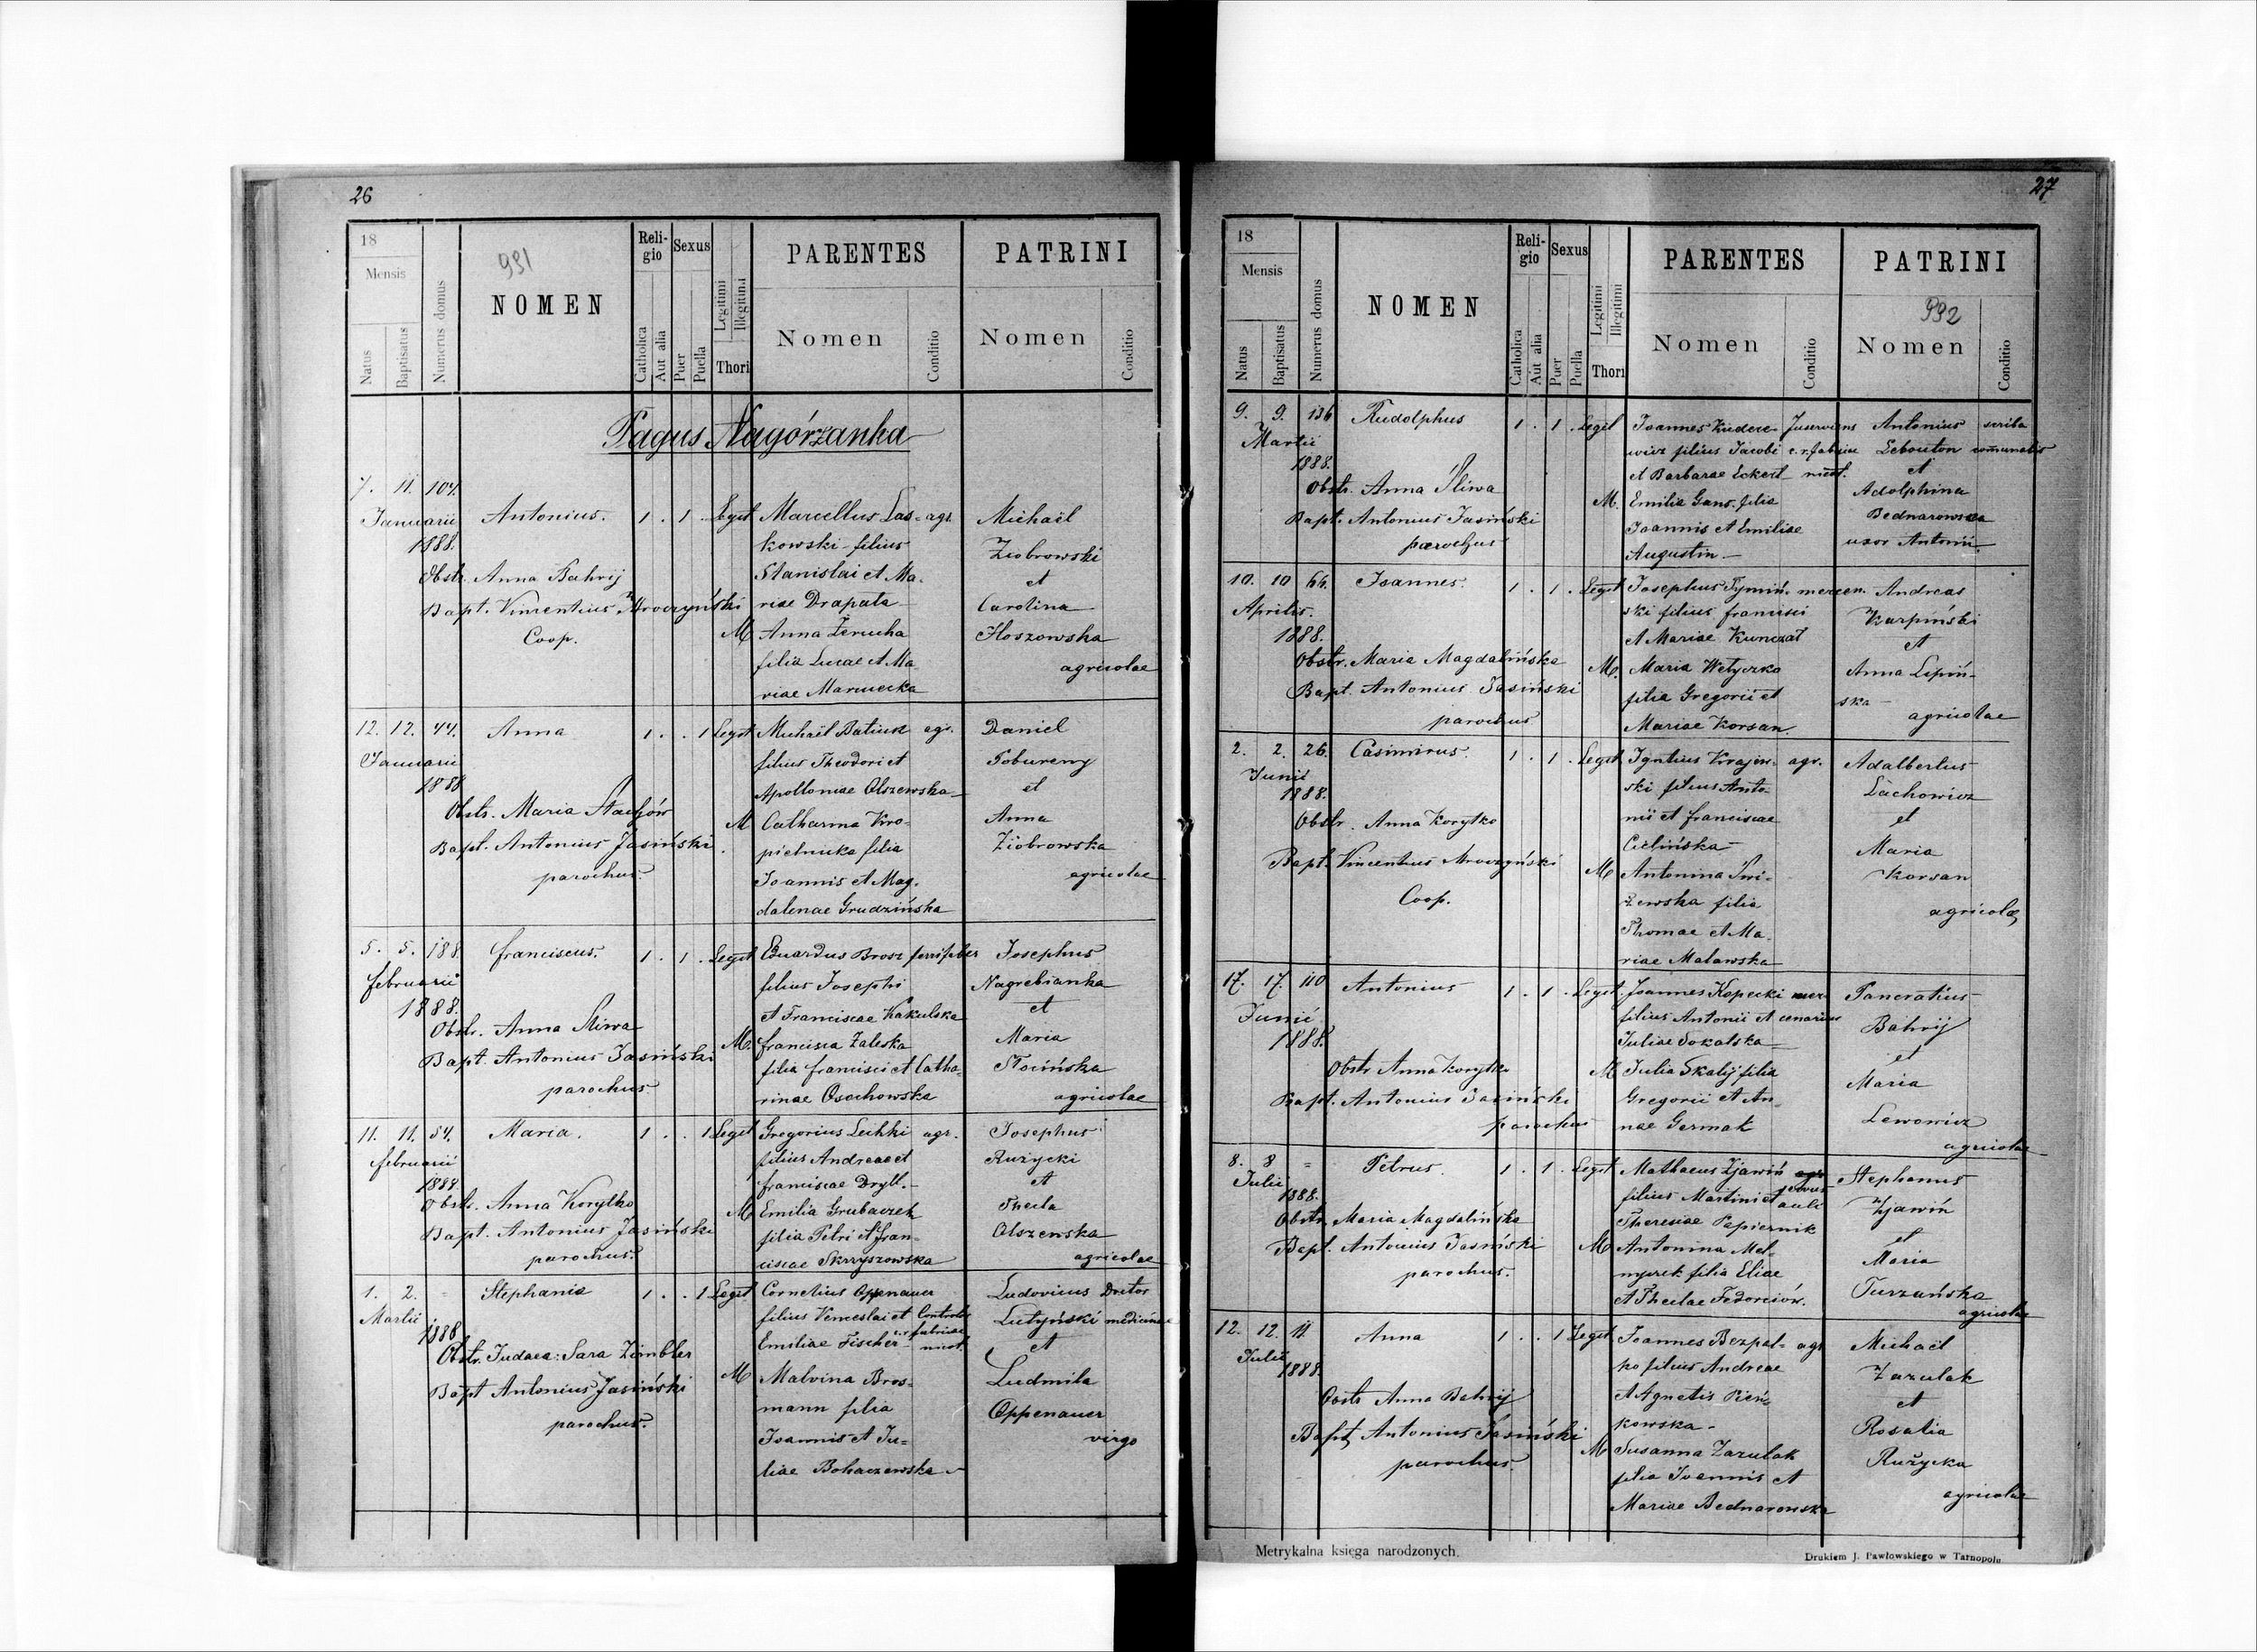 26
931
18
Mensis
Natus
Baptisatus
Numerus domus
NOMEN
Reli-
gio
Catholica
Aut alia
Sexus
Puer
Puella
Legitimi
Illegitimi
Thori
PARENTES
Nomen
Conditio
PATRINI
Nomen
Conditio
Pagus Nagórzanka
7. 11. 104.
Januarii Antonius. 1 . 1 . Legit Marcellus Las- agr. Michaël
1888. kowski filius Ziobrowski
Obstr. Anna Bahrij Stanislai et Ma- et
Bapt. Vincentius Mroczyński riae Drapała Carolina
Coop. M Anna Zerucha Hoszowska
filia Lucae et Ma agricolae
riae Maruccka
12. 12. 44. Anna 1 . . 1 Legit Michaël Batiuk agr. Daniel
Januarii filius Theodori et Pobureny
1888 Apolloniae Olszewska et
Obstr. Maria Stachów M Catharina Kro- Anna
Bapt. Antonius Jasiński pielnicka filia Ziobrowska
parochus. Joannis et Mag- agricolae
dalenae Grudzińska
5. 5. 188. Franciscus. 1 . 1 . Legit Eduardus Brosz Josephus
Februarii filius Josephi Nagrebianka
1888. et Franciscae Kakulska et
Obstr. Anna Śliwa M. Francisca Zaleska Maria
Bapt. Antonius Jasiński filia Francisci et Catha- Słocińska
parochus rinae Osochowska agricolae
11. 11. 54. Maria. 1 . . 1 Legit Gregorius Lechki agr. Josephus
Februarii filius Andreae et Ruzycki
1888. Franciscae Dryll.- et
Obstr. Anna Korytko M Emilia Grubaczek Thecla
Bapt. Antonius Jasiński filia Petri et Fran- Olszewska
parochus. ciscae Skrzyszowska agricolae
1. 2. - Stephania 1 . . 1 Legit Cornelius Oppenauer Ludovicus Doctor
Martii filius Venceslai et Controlor Lutyński medicinae
1888 Emiliae Fischer c.r. fabricae nicot. et
Obstr. Judaea: Sara Zimbler M Malvina Bros- Ludmila
Bapt Antonius Jasiński mann filia Oppenauer
parochus. Joannis et Ju- virgo
liae Bohaczewska
27
18
Mensis
Natus
Baptisatus
Numerus domus
NOMEN
Reli-
gio
Catholica
Aut alia
Sexus
Puer
Puella
Legitimi
Illegitimi
Thori
PARENTES
Nomen
Conditio
PATRINI
992
Nomen
Conditio
9. 9. 136 Rudolphus 1 . 1 . Legit Joannes Kudere- Inserviens Antonius scriba
Martii wicz filius Jacobi c.r. fabricae Lebouton communalis
1888. et Barbarae Eckert nicot. et
Obstr. Anna Śliwa M. Emilia Gans filia Adolphina
Bapt. Antonius Jasiński Joannis et Emiliae Bednarowska
parochus Augustin uxor Antonii
10. 10 64. Joannes. 1 . 1 . Legit Josephus Tymiń- mercen. Andreas
Aprilis. ski filius Francisci Karpiński
1888. et Mariae Kunczat et
Obstr. Maria Magdalińska M. Maria Wetyczko Anna Lipiń-
Bapt. Antonius Jasiński filia Gregorii et ska
parochus Mariae Korsan agricolae
2. 2. 26. Casimirus. 1 . 1 . Legit Igntius Krajew- agr. Adalbertus
Junii ski filius Anto- Lachowicz
1888. nii et Franciscae et
Obstr. Anna Korytko Cielińska Maria
Bapt. Vincentius Mroczyński M Antonina Świ- Korsan
Coop. żewska filia agricolae
Thomae et Ma-
riae Malawska
17. 17. 110 Antonius 1 . 1 . Legit. Joannes Kopecki mer- Pancratius
Junii filius Antonii et cenarius Bahrij
1888. Juliae Sokalska et
Obstr Anna Korytko M Julia Skalij filia Maria
Bapt. Antonius Jasiński Gregorii et An- Lewowicz
parochus nae Germak agricolae
8. 8 - Petrus. 1 . 1 . Legit Mathaeus Zjawiń agr. Stephanus
Julii filius Martini et servus auli Zjawiń
1888. Theresiae Papiernik et
Obstr. Maria Magdalińska M Antonina Mel- Maria
Bapt. Antonius Jasiński nyczek filia Eliae Turzańska
parochus. et Theclae Fedorciów. agricolae
12. 12. 11. Anna 1 . . 1 Legit Joannes Bezpal- agr Michaël
Julii ko filius Andreae Zazulak
1888. et Agnetis Pień- et
Obstr Anna Bahrij kowska - Rosalia
Bapt. Antonius Jasiński M Susanna Zazulak Ružycka
parochus. filia Joannis et agricolae
Mariae Bednarowska
Metrykalna księga narodzonych.
Drukiem J. Pawłowskiego w Tarnopolu